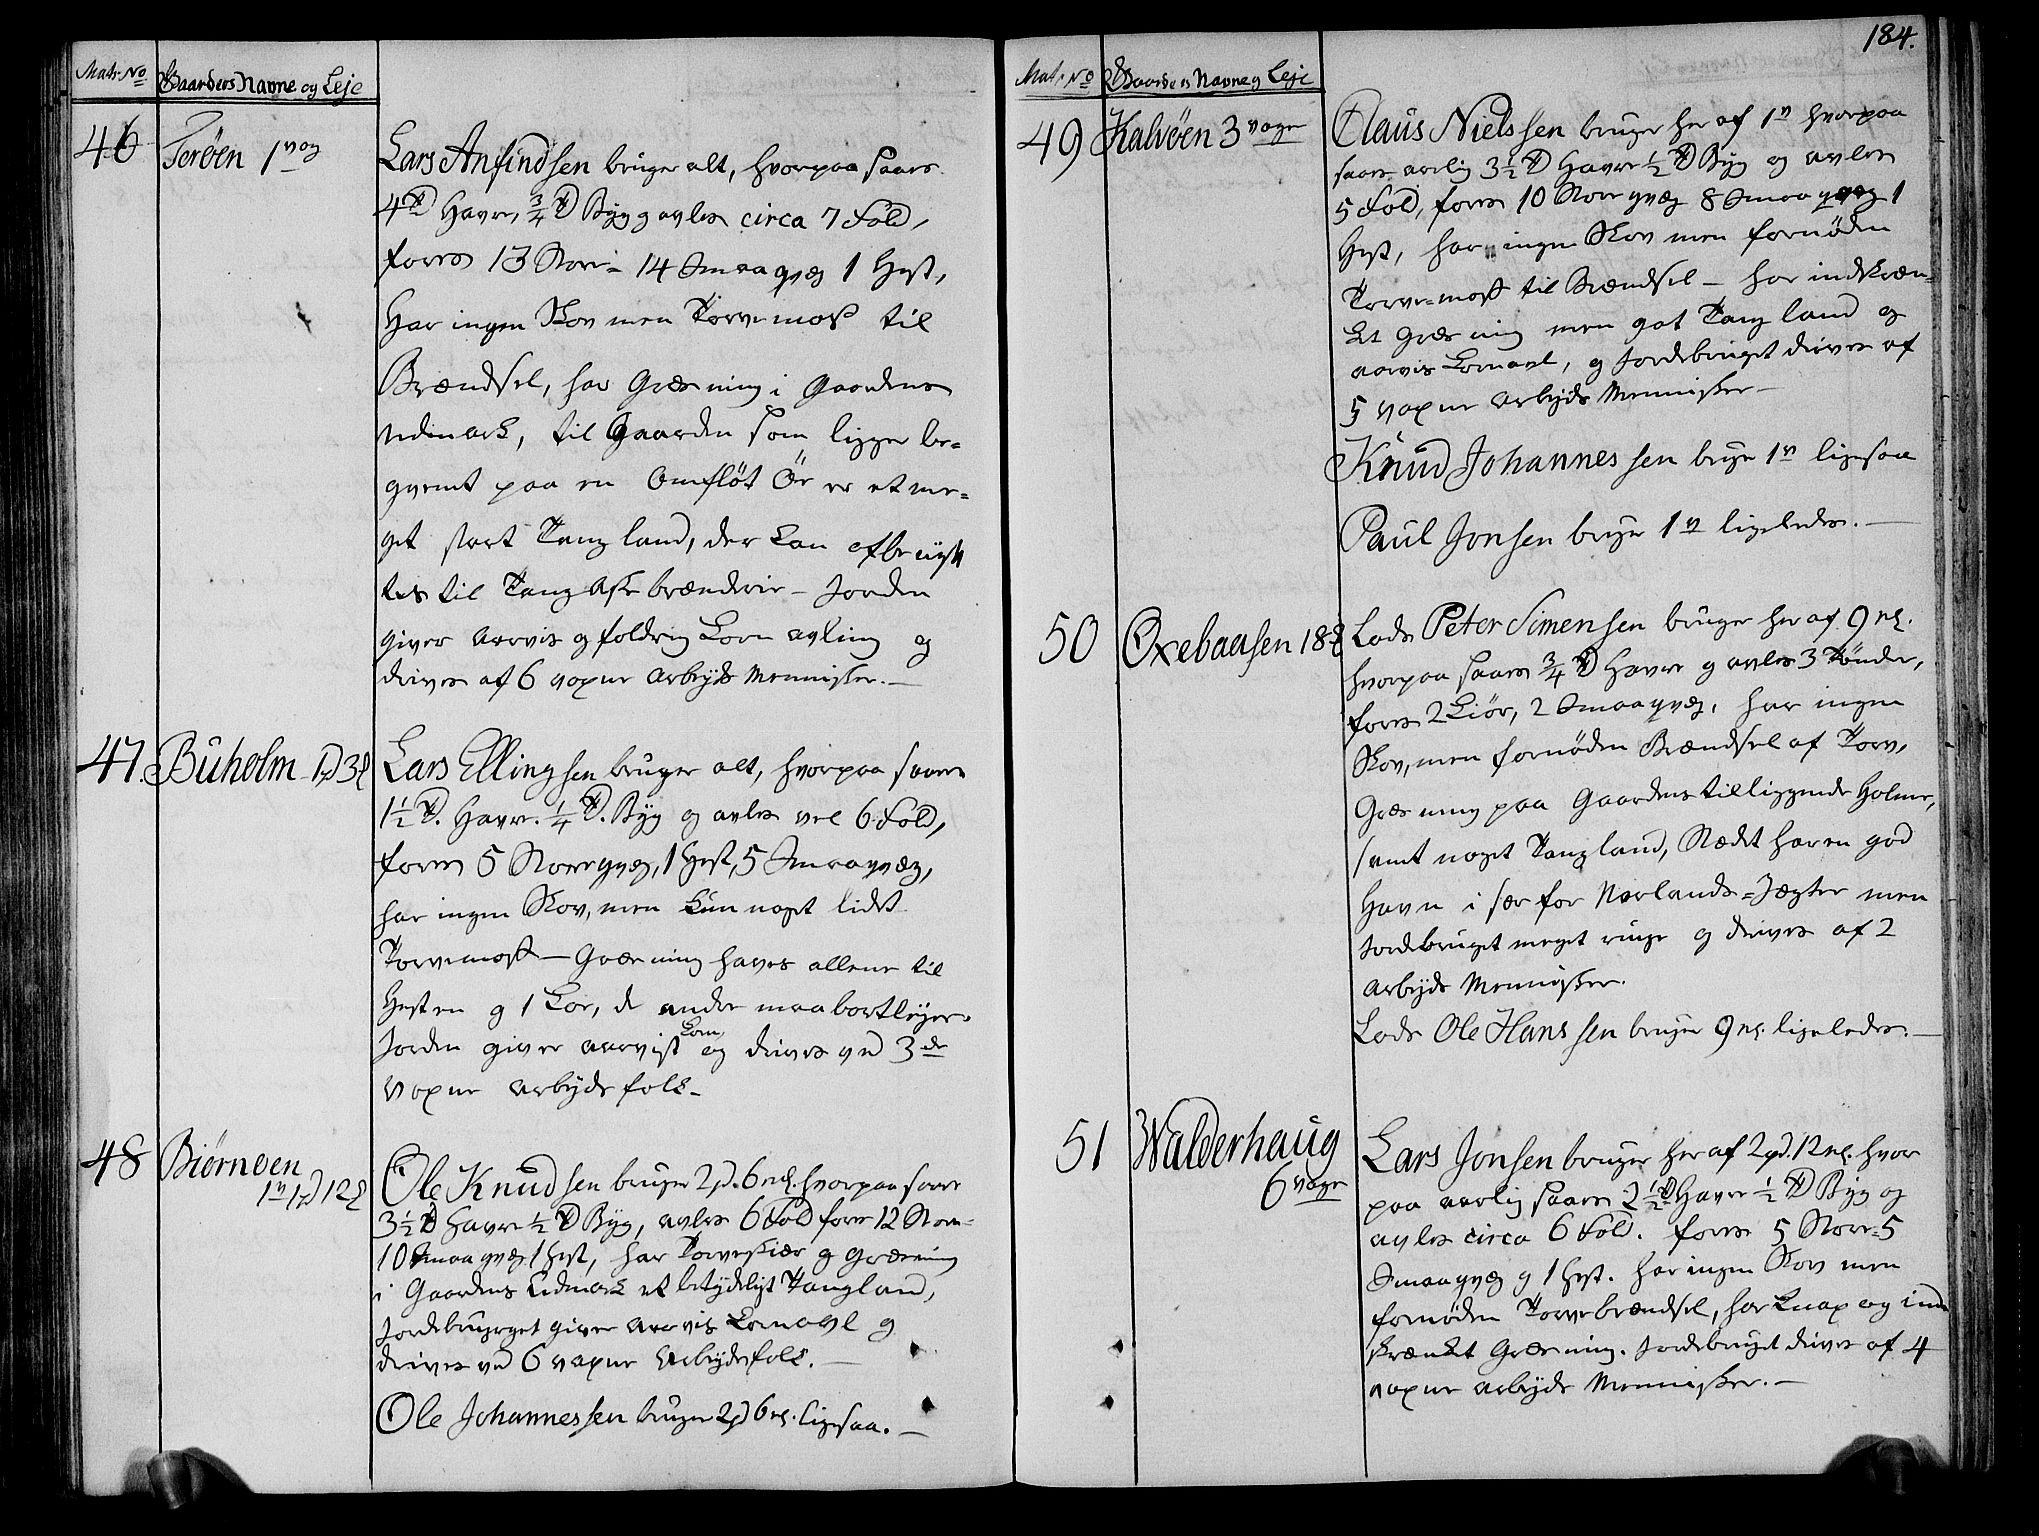 Matr No Gaardens Navne og Leje
46 Terøen 1 vog
Lars Anfindsen bruger alt, hvorpaa saaes
4 Td Havre, 3/4 Td Byg og avles circa 7 Fold,
fores 13 Stor- 14 Smaaqvæg 1 Hest,
Har ingen Skov men Torvemoss til
Brændsel, har Græsning i Gaardens
Udmark, til Gaarden som ligger be-
qvemt paa en Omfløt Öe er et me-
get stort Tangland, der kan afbenyt
tes til Tang Aske brænderie - Jorden
giver aarvis og foldrig Korn avling og
drives af 6 voxne Arbejds Mennisker. -
47 Buholm 1 pd 3 ℔
Lars Ellingsen bruger alt, hvorpaa saaes
1 1/2 Td. Havre. 1/4 Td. Byg og avles vel 6 Fold,
fores 5 Storeqvæg, 1 Hest, 5 Smaaqvæg,
har ingen Skov, men kun noget lidet
Torvemoss - Græsning haves allene til
Hesten og 1 Koe, de andre maa bortlejes.
Jorden giver aarvist Korn og drives ved 3de
voxne arbejds folk -
48 Biørnøen
1 v 1 pd 12 ℔
Ole Knudsen bruger 2 pd. 6 mk. hvorpaa saaes
3 1/2 Td Havre 1/2 Td Byg, avles 6 Fold fores 12 Store-
10 Smaaqvæg 1 Hest, har Torveskiær og Græsning
i Gaardens Udmark et betydeligt Tangland,
Jordebruget giver aarvis Kornavl og
drives ved 6 voxne Arbejdsfolk. -
Ole Johannessen bruger 2 pd 6 mk. ligesaa. -
184.
Matr No Gaardens Navne og Leje
49 Kalvøen 3 voger
Claus Nielssen bruger her af 1 v hvorpaa
saaes aarlig 3 1/2 Td Havre 1/2 Td Byg og avles
5 Fold, fores 10 Storeqvæg 8 Smaaqvæg 1
Hest, har ingen Skov men fornøden
Torve-moss til Brændsel - har indskræn-
ket Græsning men got Tangland og
aarvis Kornavl, og Jordebruget drives af
5 voxne Arbejds Mennisker -
Knud Johannessen bruger 1 v ligesaa
Paul Jonsen bruger 1 v ligeledes. -
50 Oxebaasen 18 ℔
Lods Peter Simensen bruger her af 9 mk.
hvorpaa saaes 3/4 Td Havre og avles 3 Tönder,
fores 2 Kiör, 2 Smaaqvæg, har ingen
Skov, men fornøden Brændsel af Torv,
Græsning paa Gaardens tilliggende Holme,
samt noget Tangland, Stædet har en god
Havn i sær for Norlands-Jægter men
Jordebruget meget ringe og drives af 2
Arbejds Mennisker.
Lods Ole Hanssen bruger 9 mk. ligeledes. -
51 Walderhaug
6 voger
Lars Jonsen bruger her af 2 pd. 12 mk. hvor
paa aarlig saaes 2 1/2 Td Havre 1/2 Td Byg og
avles circa 6 Fold. fores 5 Store- 5
Smaaqvæg og 1 Hest. har ingen Skov men
fornøden Torvebrændsel, har knap og ind
skrænket Græsning. Jordebruget drives af 4
voxne arbejds Mennisker. -